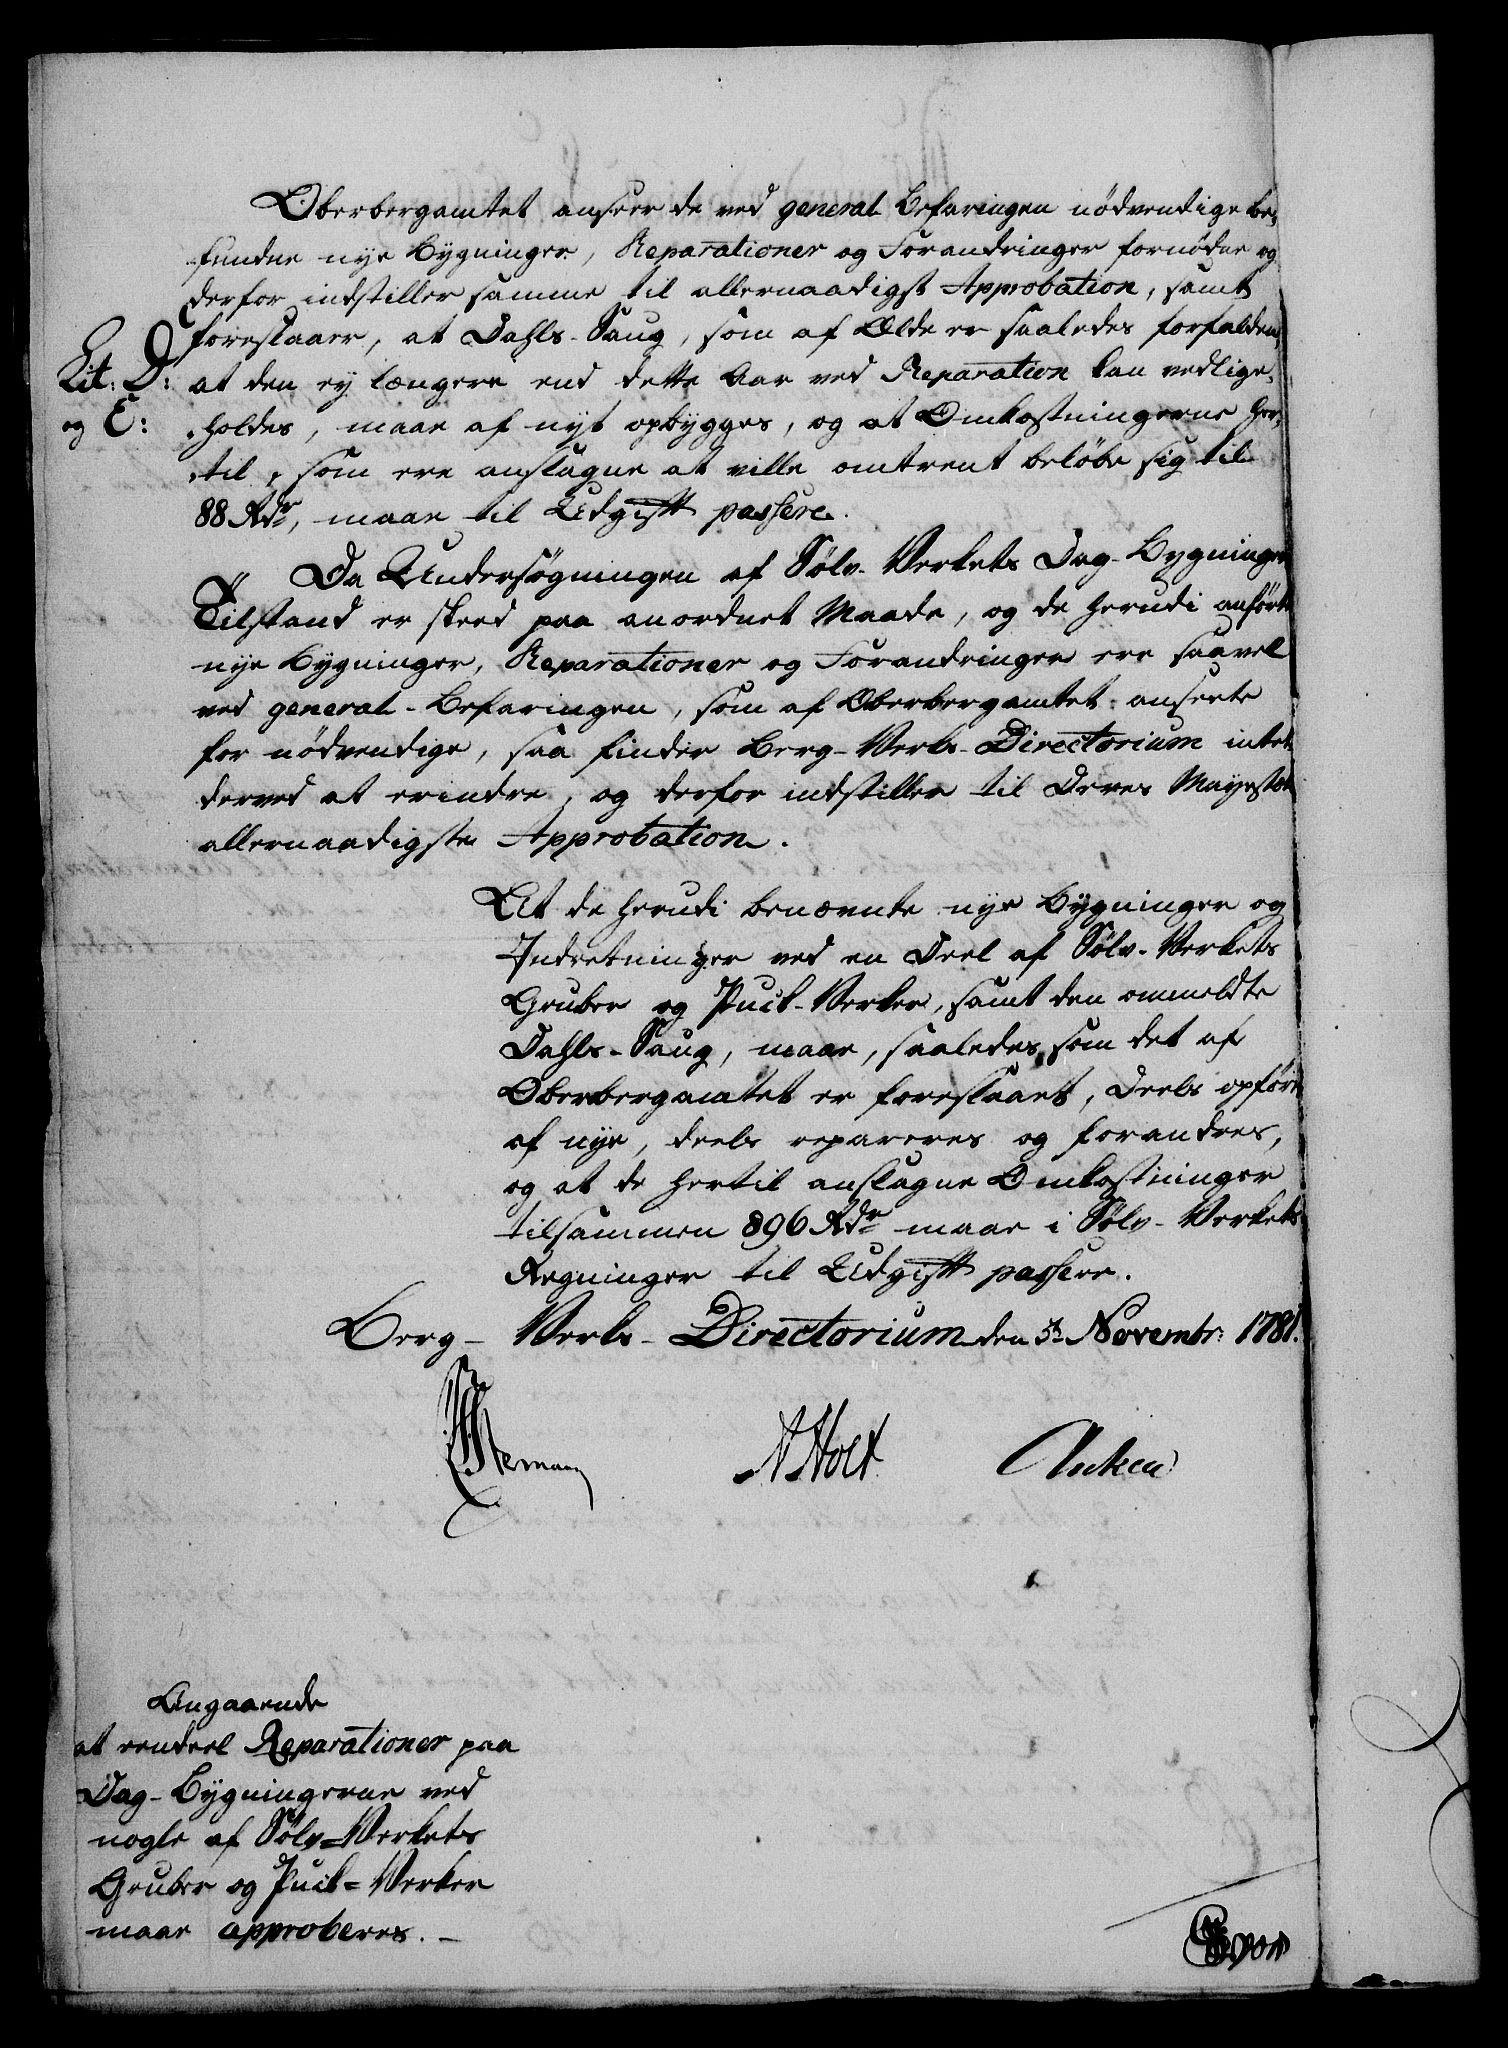 Oberbergamtet anseer de ved general Befaringen nödvendige be-
fundne nye Bygninger, Reparationer og Forandringer fornödne og
derfor indstiller samme til allernaadigst Approbation, samt
foreslaaer, at Dahls-Saug, som af Ælde er saaledes forfalden,
Lit: D:
og E:
at den ey længere end dette Aar ved Reparation kan vedlige-
holdes, maae af nyt opbygges, og at Omkostningerne her-
til, som ere anslagne at ville omtrent belöbe sig til
88 Rdr, maae til Udgift passere.
Da Undersögningen af Sölv-Verkets Dag-Bygningers
Tilstand er skeed paa anordnet Maade, og de herudi anförte
nye Bygninger, Reparationer og Forandringer ere saavel
ved general-Befaringen, som af Oberbergamtet anseete
for nödvendige, saa finder Berg-Verks-Directorium intet
derved at erindre, og derfor indstiller til Deres Mayestæts
allernaadigste Approbation.
At de herudi benævnte nye Bygninger og
Indretninger ved en Deel af Sölv-Verkets
Gruber og Puck-Verker, samt den ommeldte
Dahls-Saug, maae, saaledes som det af
Oberbergamtet er foreslaaet, deels opföres
af nye, deels repareres og forandres,
og at de hertil anslagne Omkostninger
tilsammen 896 Rdr maae i Sölv-Verkets
Regninger til Udgift passere.
Berg-Verks-Directorium den 5te Novembr: 1781.
N Holt Anker
Angaaende
at eendeel Reparationer paa
Dag-Bygningerne ved
nogle af Sölv-Verkets
Gruber og Puck-Verker
maae approberes.